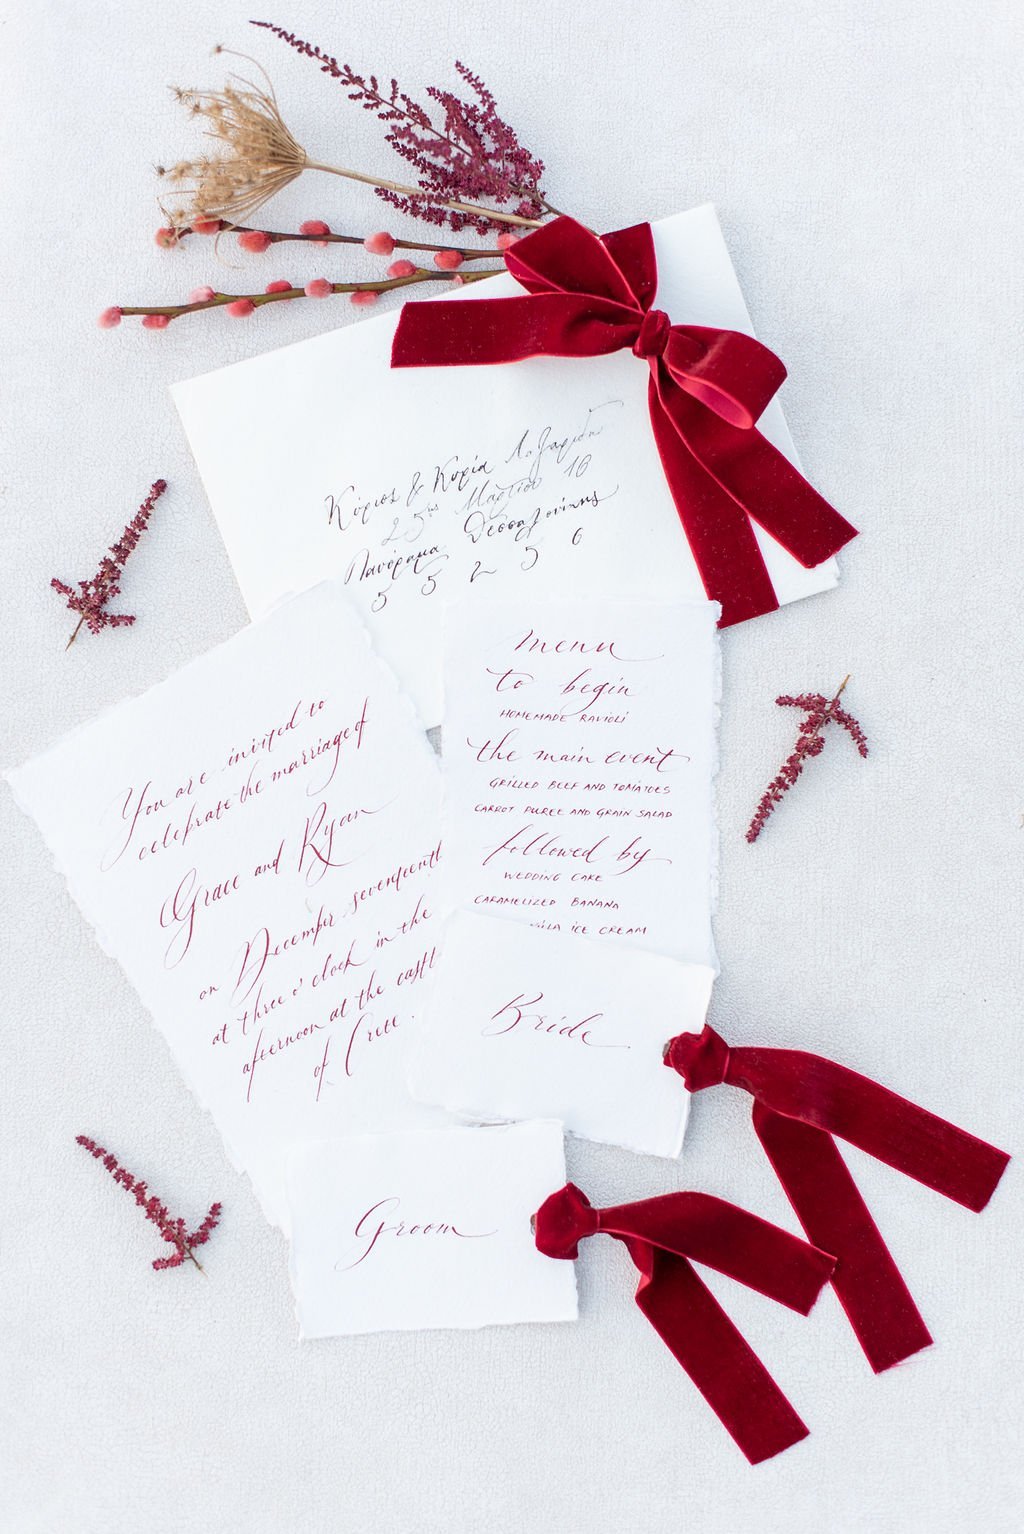 Κύριος & Κυρία Λαζαρίδη
25ης Μαρτίου 16
Πανόραμα Θεσσαλονίκης
5 5 2 5 6
You are invited to
celebrate the marriage of
Grace and Ryan
on December seventeenth
at three o'clock in the
afternoon at the castl
of Crete.
menu
to begin
HOMEMADE RAVIOLI
the main event
GRILLED BEEF AND TOMATOES
CARROT PUREE AND GRAIN SALAD
followed by
WEDDING CAKE
CARAMELIZED BANANA
ICE CREAM
Bride
Groom